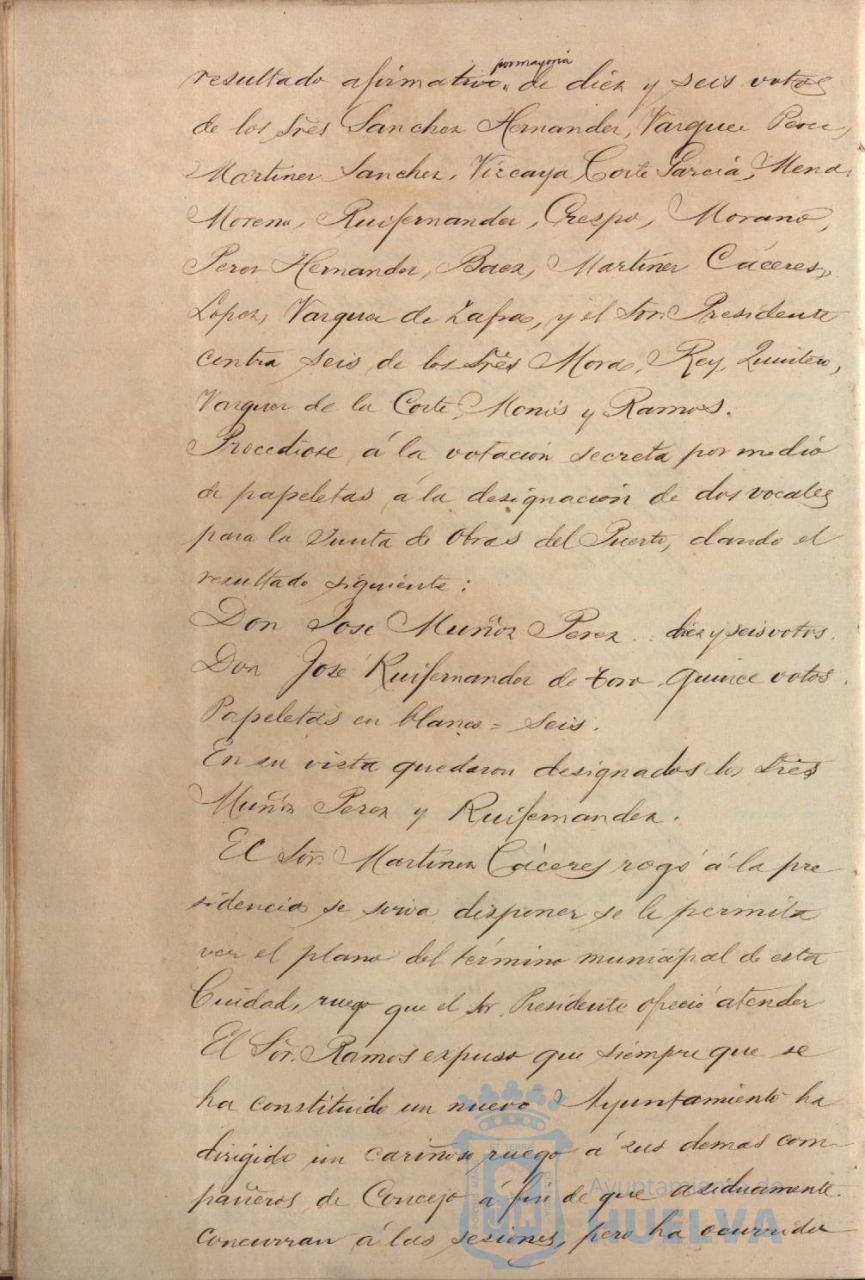 resultado afirmativo por mayoria de diez y seis votos
de los Sres Sanchez Hernandez, Vazquez Perez,
Martinez Sanchez, Vizcaya, Corte Garcia, Mend.
Moreno, Ruifernandez, Crespo, Morano,
Perez Hernandez, Baez, Martinez Cáceres,
Lopez, Vazquez de Zafra, y el Sor. Presidente
contra seis de los Sres Mora, Rey, Quintero,
Vazquez de la Corte, Monis y Ramos.
Procediose á la votación secreta por medio
de papeletas á la designación de dos vocales
para la Junta de Obras del Puerto, dando el
resultado siguiente:
Don Jose Muñoz Perez .. diez y seis votos.
Don José Ruifernandez de Toro. quince votos.
Papeletas en blanco = seis.
En su vista quedaron designados los Sres
Muñoz Perez y Ruifernandez.
El Sor. Martinez Cáceres rogó á la pre
sidencia se sirva disponer se le permita
ver el plano del término municipal de esta
Ciudad, ruego que el Sor. Presidente ofreció atender
El Sor. Ramos expuso que siempre que se
ha constituido un nuevo Ayuntamiento ha
dirigido un cariñoso ruego á sus demas com-
pañeros de Concejo á fin de que asiduamente
concurran á las sesiones, pero ha ocurrido
Ayuntamiento de
HUELVA